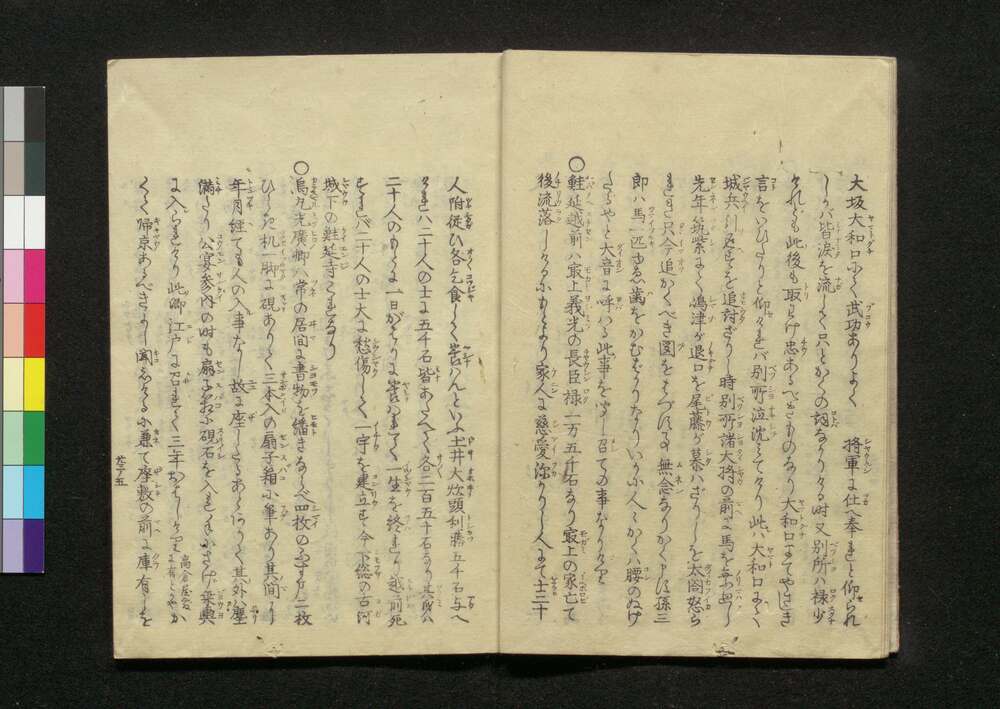 大坂大和口にて武功ありよく　将軍に仕へ奉れと仰られ
しかバ皆涙を流しこれとかくの詞なかりける時又別所ハ禄少
けれども此後も取わけ忠あるべきものなり大和口にてやさしき
言をいひたりと仰けれバ別所泣沈ミてけり此ハ大和口にて
城兵引返すを追討ざりし時別所諸大将の前に馬を乗出し
先年筑紫にて嶋津が退口を尾藤が慕ハざりしを太閤怒ら
れき只今追かくべき図をはづす無念なりかく申は孫三
郎ハ馬一匹ゆゑ歯をかむばかりなりいかに人々かくハ腰のぬけ
たるやと大音に呼ハる此事を
〇鮭延越前ハ最上義光の長臣禄一万五千石なり最上の家亡て
後流落しけるにもとより家人に慈愛深かりし人にて士二十
人附従ひ各乞食して養はんといふ土井大炊頭利勝五千石与へ
けれハ二十人の士に五千石皆あたへて各二百五十石なり其身ハ
二十人のもとに一日がはりに養はれて一生を終れり越前死
すれバ二十人の士大に愁傷して一宇を建立す今下総の古河
城下の鮭延寺これなり
〇烏丸光廣卿ハ常の居間に書物を繙きならべ四枚のふすま二枚
ひらき机一脚に硯ありて三本入の扇子箱に筆あり其間に
年月経ても人の入事なし故に座したるあとありて其外ハ塵
満たり公宴参内の時も扇子および硯石を入れ乗輿
に入られけり此卿江戸に召れて三年おはしけり
くて帰京あるべきよし聞えけるに兼て座敷の前に庫有しを